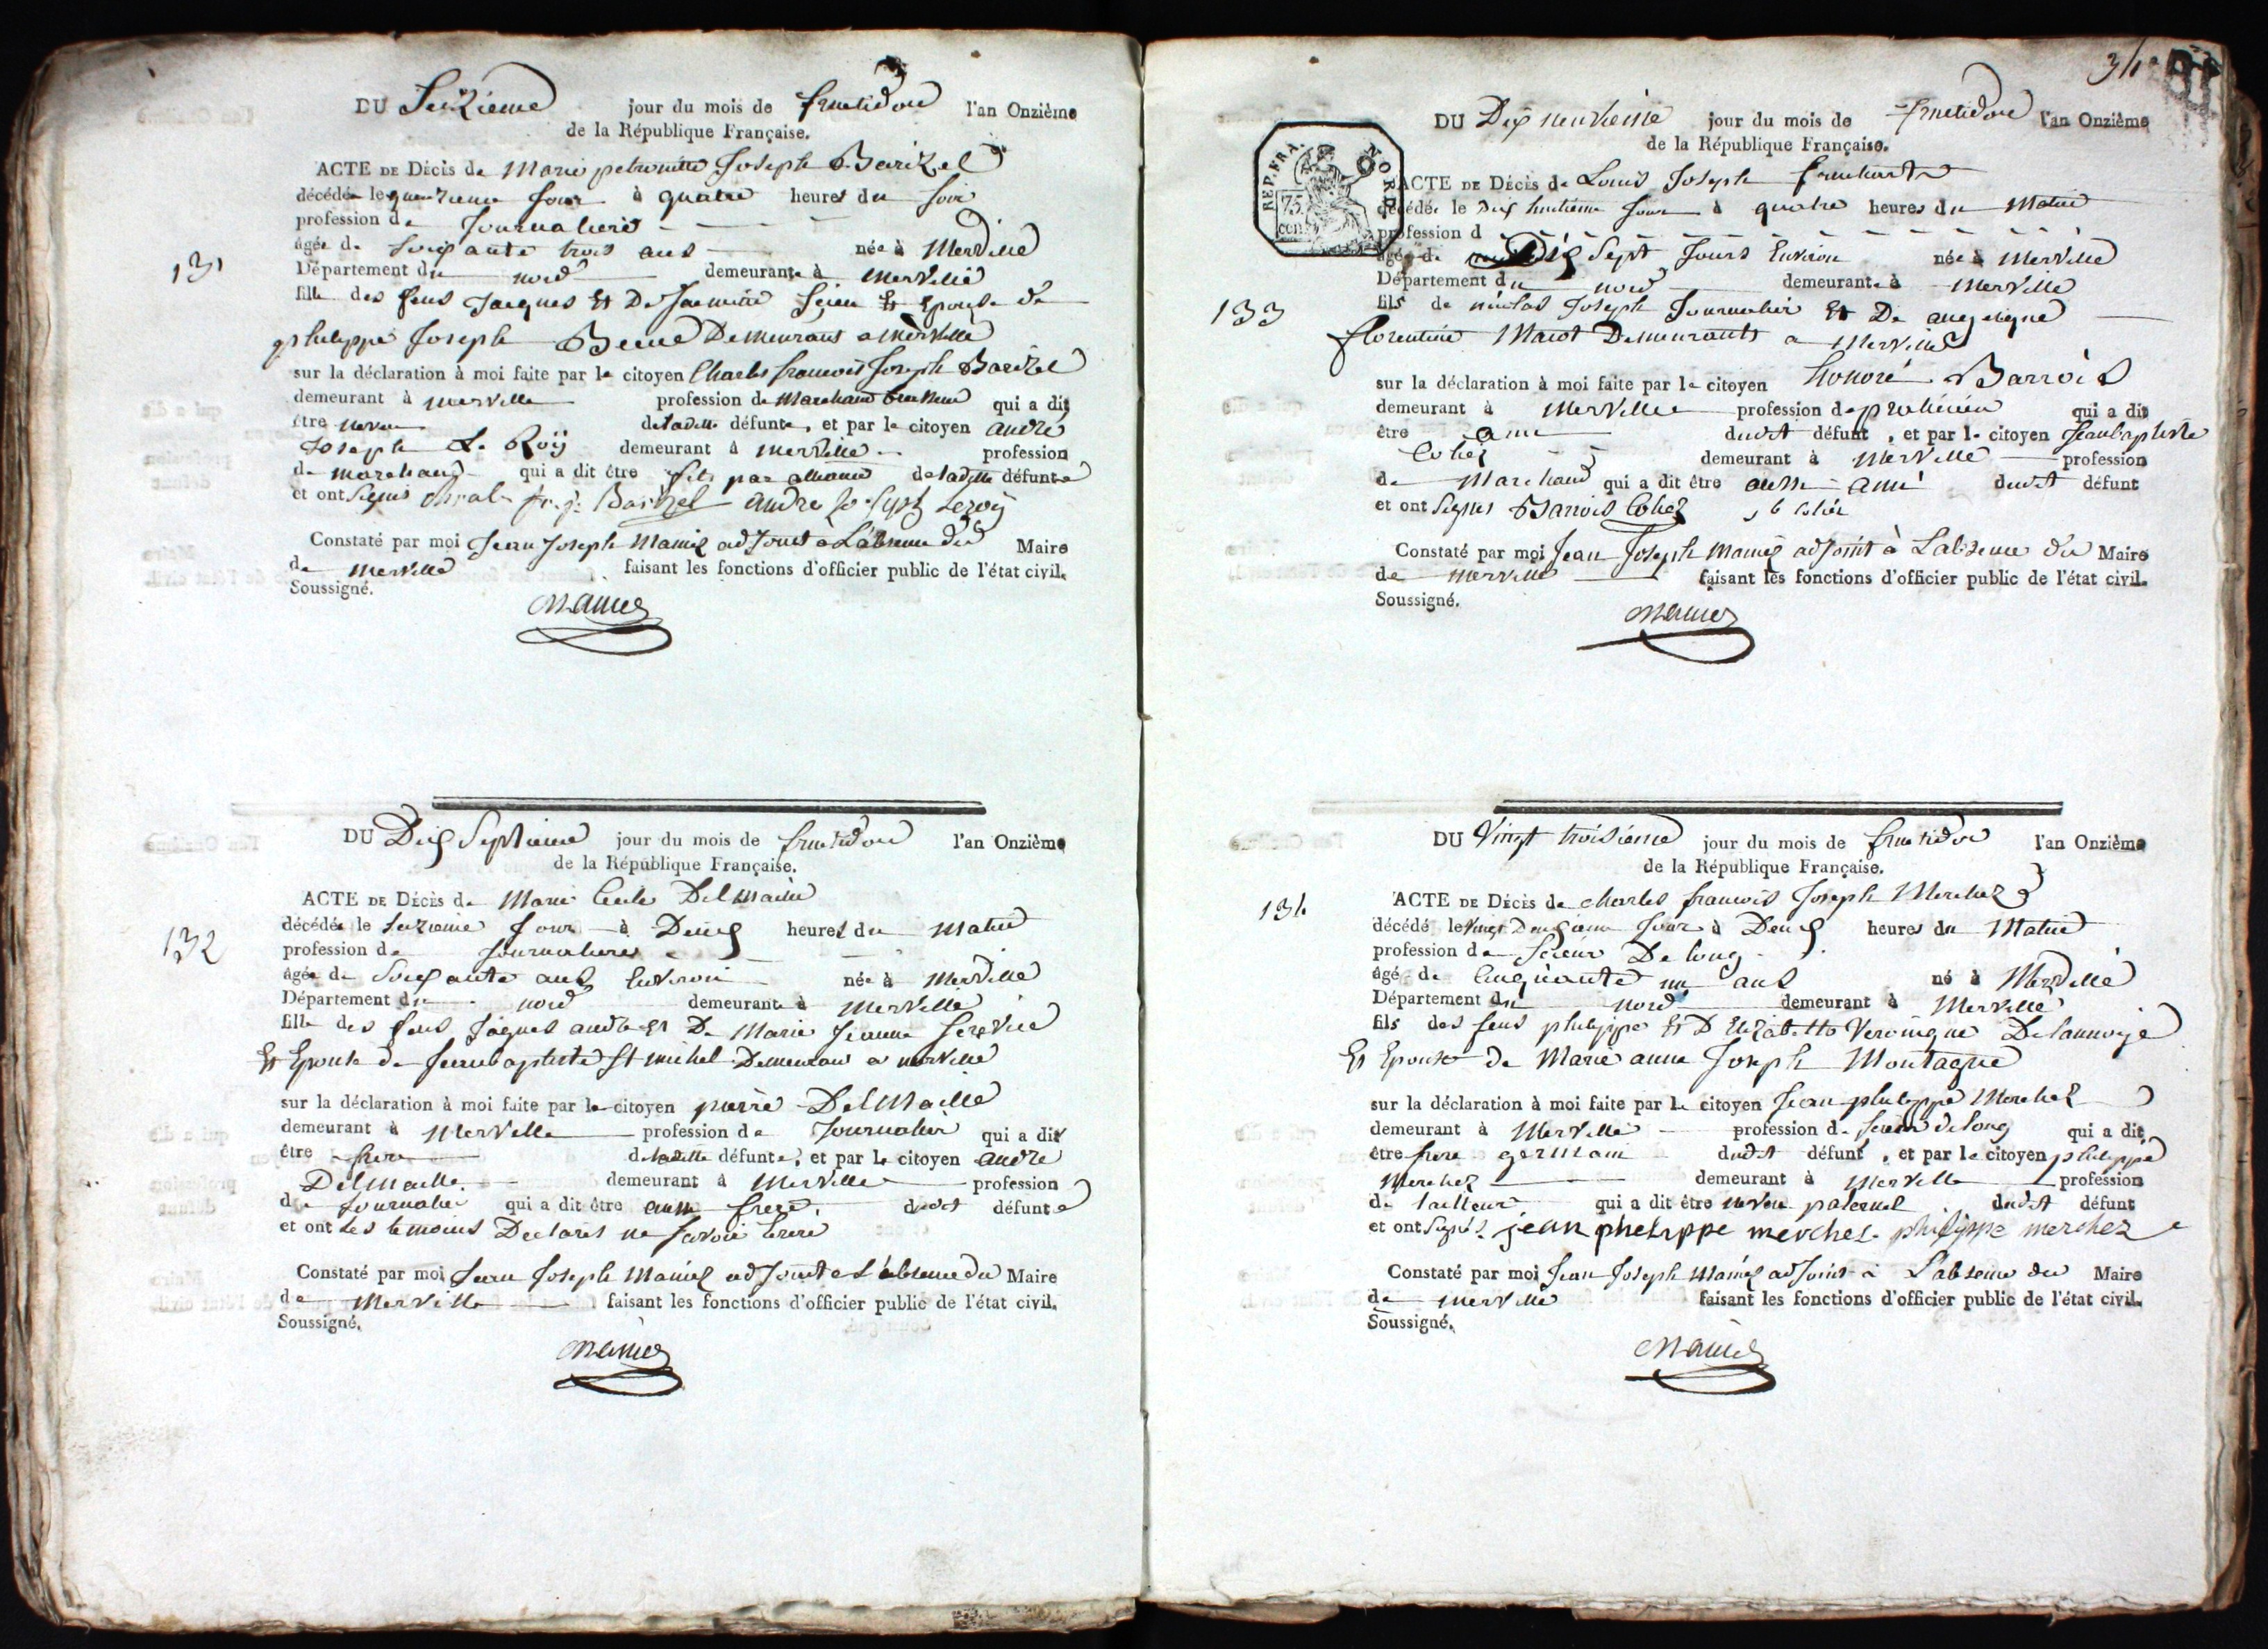 DU Seizieme jour du mois de fructidor l'an Onzième
de la République Française.
ACTE DE DÉCÈS de Marie petronille Joseph Barizel
décédée le quinzieme Jour à quatre heures du Soir
profession de Journaliere
âgée de Soixante trois ans née à Merville
Département du nord demeurante à Merville
fille des feus Jacques Et De Jacmine Et Epouse de
philippe Joseph Demeurant a Merville
131
sur la déclaration à moi faite par le citoyen Charles francois Joseph Barizel
demeurant à Merville profession de Marchand qui a dit
être neveu deladitte défunte, et par le citoyen andré
Joseph Le Roÿ demeurant à Merville profession
de marchand qui a dit être fils par alliance deladitte défunte
et ont Signés Barizel andre Joseph Leroÿ
Constaté par moi Jean Joseph Mamez adJoint a L'absence du Maire
de Merville faisant les fonctions d'officier public de l'état civil.
Soussigné.
Mamez
DU Dix Septieme jour du mois de fructidor l'an Onzième
de la République Française.
132
ACTE DE DÉCÈS de Marie Cecile Delmaille
décédée le Seizieme Jour à Deux heures du Matin
profession de Journaliere
âgée de Soixante ans Environ née à Merville
Département du nord demeurante à Merville
fille des feus Jaques andré Et De Marie Jeanne
Et Epouse de Jeanbaptiste St michel Demeurant a merville
sur la déclaration à moi faite par le citoyen pierre Delmaille
demeurant à Merville profession de Journalier qui a dit
être frere deladitte défunte, et par le citoyen andré
Delmaille demeurant à Merville profession
de Journalier qui a dit être aussi frere dudit défunte
et ont Les temoins Declarés ne savoir Ecrire
Constaté par moi Jean Joseph Mamez adJoint a L'absence du Maire
de Merville faisant les fonctions d'officier public de l'état civil.
Soussigné.
Mamez
34
REP. FRA. NORD
75 cent
DU Dix neuvieme jour du mois de fructidor l'an Onzième
de la République Française.
ACTE DE DÉCÈS de Louis Joseph
décédé le Dix huitieme Jour à quatre heures du Matin
profession d
âgé de Dix Sept Jours Environ né à Merville
Département du nord demeurant à Merville
133
fils de nicolas Joseph Journalier Et De angelique
florentine Macot Demeurants a Merville
sur la déclaration à moi faite par le citoyen honoré Barrois
demeurant à Merville profession de qui a dit
être ami dudit défunt, et par le citoyen Jeanbaptiste
Cohez demeurant à Merville profession
de Marchand qui a dit être aussi ami dudit défunt
et ont Signés Barrois Cohez
Constaté par moi Jean Joseph Mamez adJoint à L'absence du Maire
de Merville faisant les fonctions d'officier public de l'état civil.
Soussigné.
Mamez
DU Vingt troisieme jour du mois de fructidor l'an Onzième
de la République Française.
134
ACTE DE DÉCÈS de Charles francois Joseph Merchez
décédé le Vingt Deuxieme Jour à Deux heures du Matin
profession de Scieur De long
âgé de Cinquante un ans né à Merville
Département du nord demeurant à Merville
fils des feus philippe Et D'Elizabette Veronique Delannoye
Et Epoux de Marie anne Joseph Montagne
sur la déclaration à moi faite par le citoyen Jean philippe Merchez
demeurant à Merville profession de Scieur de long qui a dit
être frere germain dudit défunt, et par le citoyen philippe
Merchez demeurant à Merville profession
de tailleur qui a dit être neveu paternel dudit défunt
et ont Signés jean phelippe merchez philippe merchez
Constaté par moi Jean Joseph Mamez adJoint à L'absence du Maire
de Merville faisant les fonctions d'officier public de l'état civil.
Soussigné.
Mamez